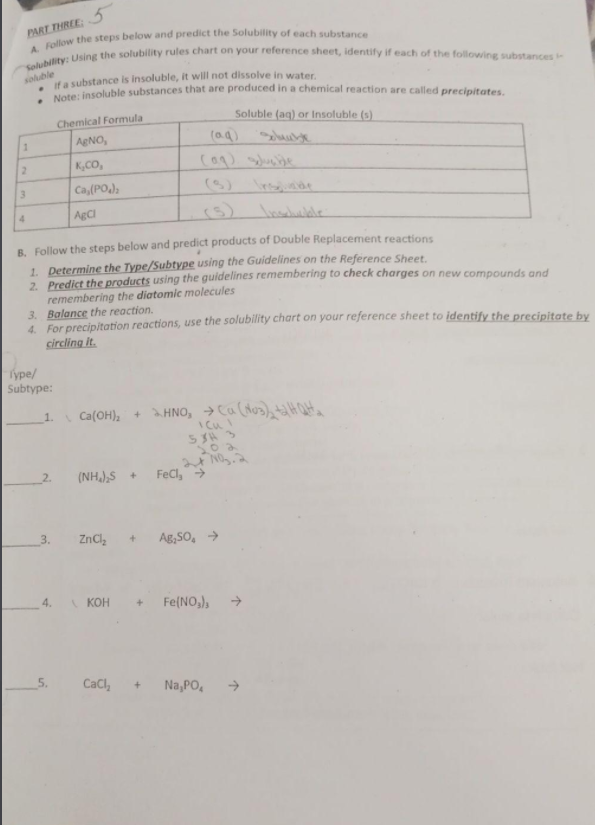 PART THREE: 5
A. Follow the steps below and predict the Solubility of each substance
Solubility: Using the solubility rules chart on your reference sheet, identify if each of the following substances is
soluble
• If a substance is insoluble, it will not dissolve in water.
• Note: insoluble substances that are produced in a chemical reaction are called precipitates.
Chemical Formula Soluble (aq) or Insoluble (s)
1 AgNO₃ (aq) soluble
2 K₂CO₃ (aq) soluble
3 Ca₃(PO₄)₂ (s) Insoluble
4 AgCl (s) Insoluble
B. Follow the steps below and predict products of Double Replacement reactions
1. Determine the Type/Subtype using the Guidelines on the Reference Sheet.
2. Predict the products using the guidelines remembering to check charges on new compounds and
remembering the diatomic molecules
3. Balance the reaction.
4. For precipitation reactions, use the solubility chart on your reference sheet to identify the precipitate by
circling it.
Type/
Subtype:
____1. Ca(OH)₂ + 2 HNO₃ → Ca(NO3)₂ +
1 Ca 1
3
2 O 2
NO₃ . 2
____2. (NH₄)₂S + FeCl₃ →
____3. ZnCl₂ + Ag₂SO₄ →
____4. KOH + Fe(NO₃)₃ →
____5. CaCl₂ + Na₃PO₄ →